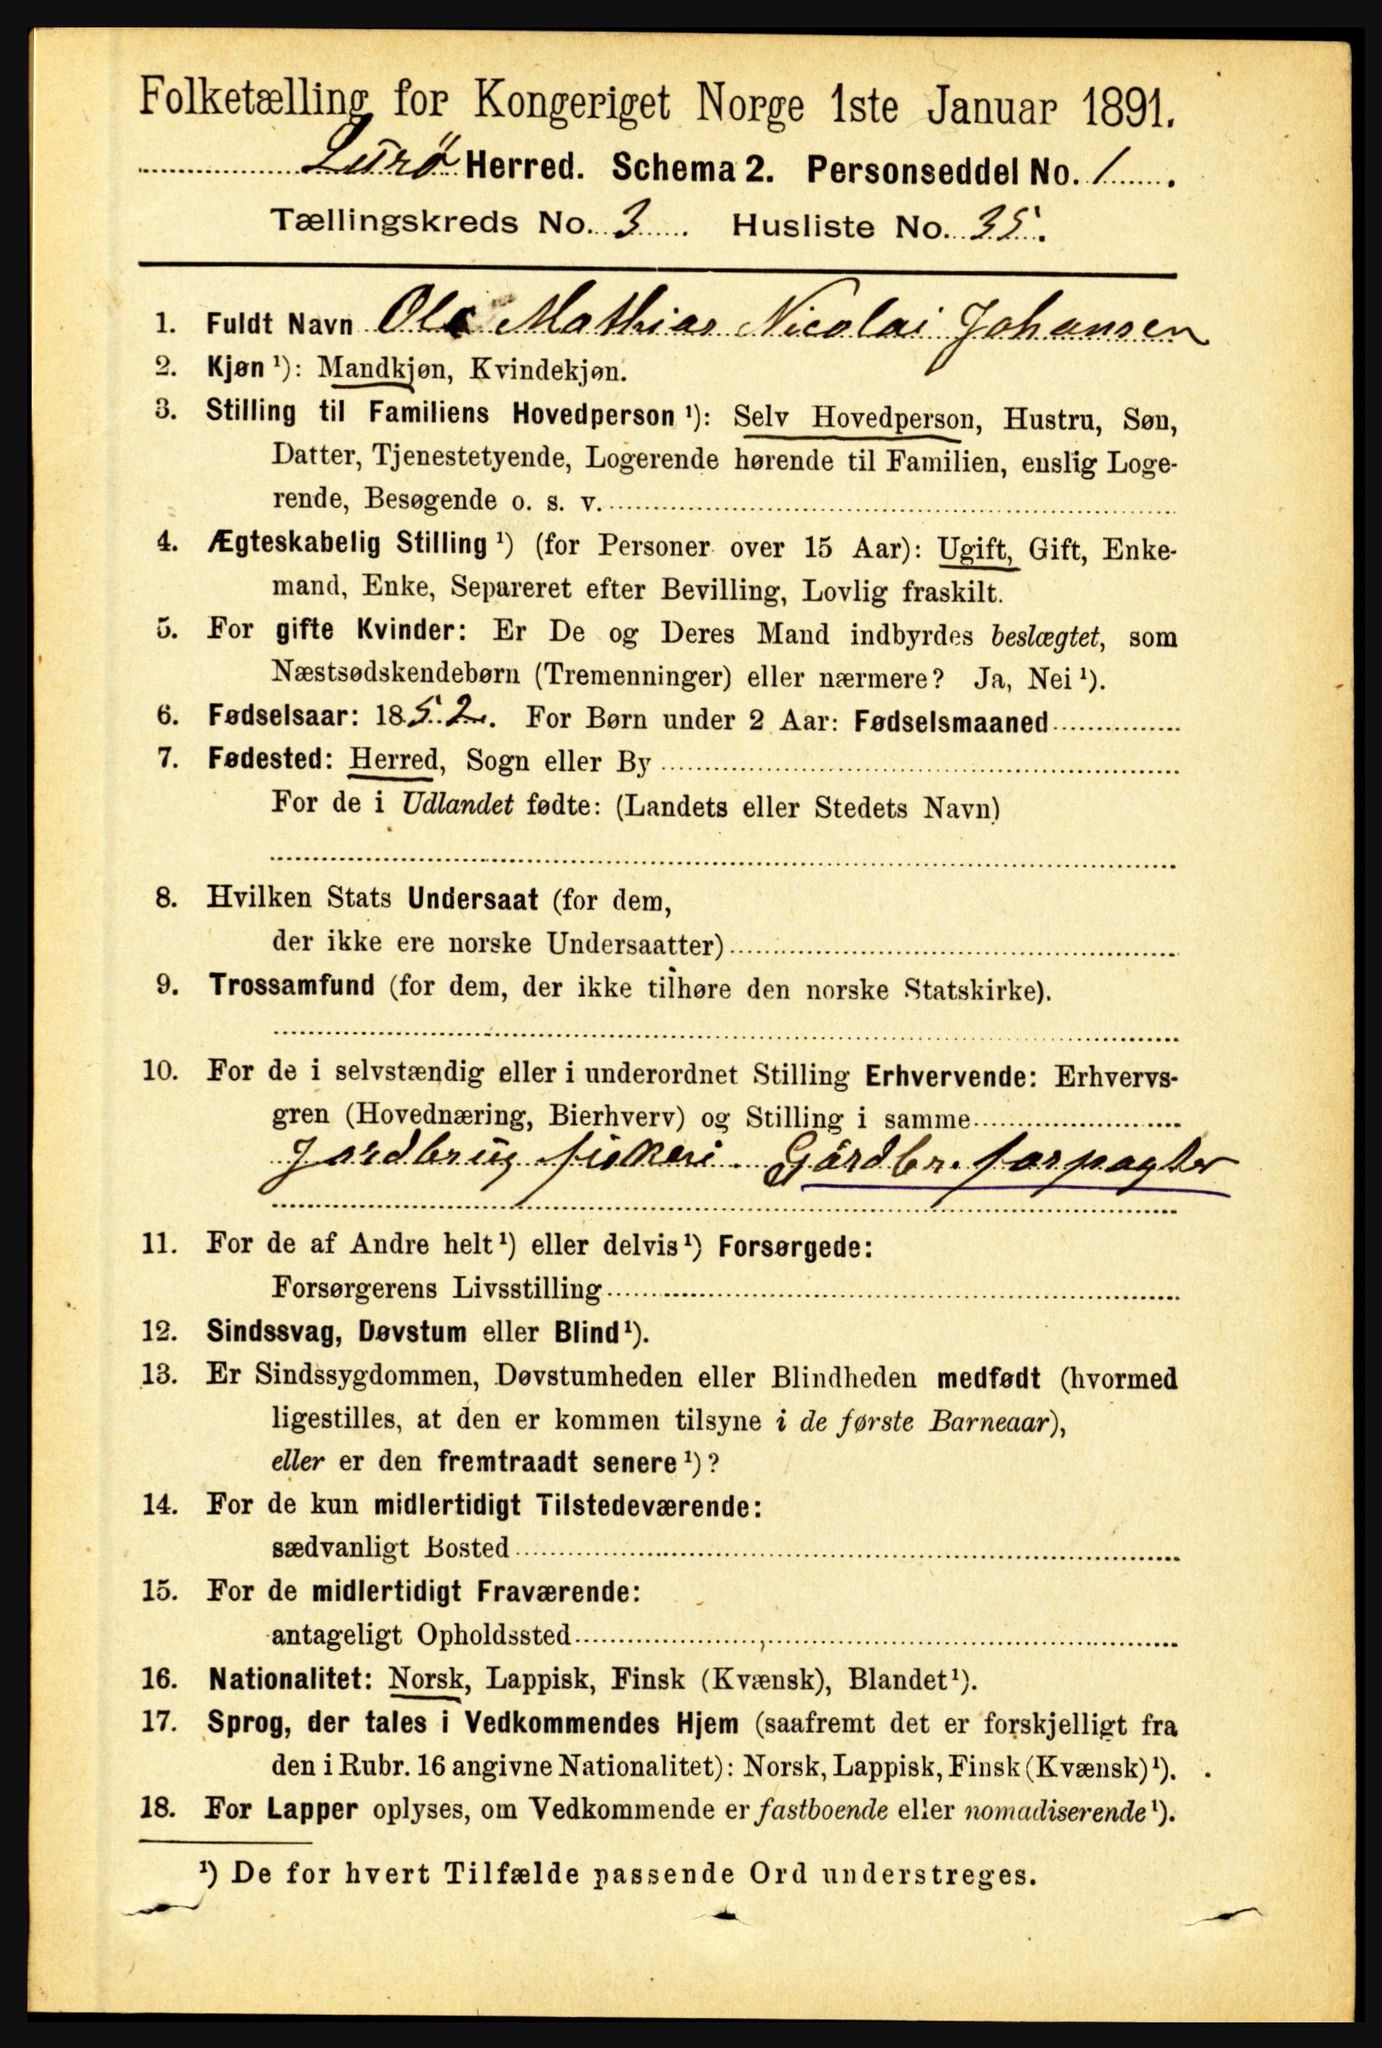 Folketælling for Kongeriget Norge 1ste Januar 1891.
Lurø Herred. Schema 2. Personseddel No. 1.
Tællingskreds No. 3. Husliste No. 35.
1. Fuldt Navn Ole Mathias Nicolai Johansen
2. Kjøn ¹): Mandkjøn, Kvindekjøn.
3. Stilling til Familiens Hovedperson ¹): Selv Hovedperson, Hustru, Søn,
Datter, Tjenestetyende, Logerende hørende til Familien, enslig Loge-
rende, Besøgende o. s. v.
4. Ægteskabelig Stilling ¹) (for Personer over 15 Aar): Ugift, Gift, Enke-
mand, Enke, Separeret efter Bevilling, Lovlig fraskilt.
5. For gifte Kvinder: Er De og Deres Mand indbyrdes beslægtet, som
Næstsødskendebørn (Tremenninger) eller nærmere? Ja, Nei ¹).
6. Fødselsaar: 1852. For Børn under 2 Aar: Fødselsmaaned
7. Fødested: Herred, Sogn eller By
For de i Udlandet fødte: (Landets eller Stedets Navn)
8. Hvilken Stats Undersaat (for dem,
der ikke ere norske Undersaatter)
9. Trossamfund (for dem, der ikke tilhøre den norske Statskirke).
10. For de i selvstændig eller i underordnet Stilling Erhvervende: Erhvervs-
gren (Hovednæring, Bierhverv) og Stilling i samme
Jordbrug fiskeri. Gårdbr. forpagter
11. For de af Andre helt ¹) eller delvis ¹) Forsørgede:
Forsørgerens Livsstilling
12. Sindssvag, Døvstum eller Blind ¹).
13. Er Sindssygdommen, Døvstumheden eller Blindheden medfødt (hvormed
ligestilles, at den er kommen tilsyne i de første Barneaar),
eller er den fremtraadt senere ¹)?
14. For de kun midlertidigt Tilstedeværende:
sædvanligt Bosted
15. For de midlertidigt Fraværende:
antageligt Opholdssted
16. Nationalitet: Norsk, Lappisk, Finsk (Kvænsk), Blandet ¹).
17. Sprog, der tales i Vedkommendes Hjem (saafremt det er forskjelligt fra
den i Rubr. 16 angivne Nationalitet): Norsk, Lappisk, Finsk (Kvænsk) ¹).
18. For Lapper oplyses, om Vedkommende er fastboende eller nomadiserende ¹).
¹) De for hvert Tilfælde passende Ord understreges.